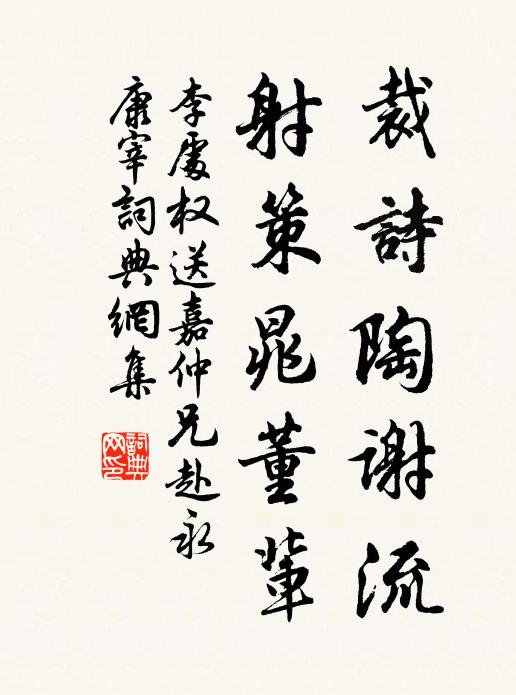 裁詩陶謝流
射策晁董輩
李處权送嘉仲兄赴永
康宰詞典網集
詞典网印